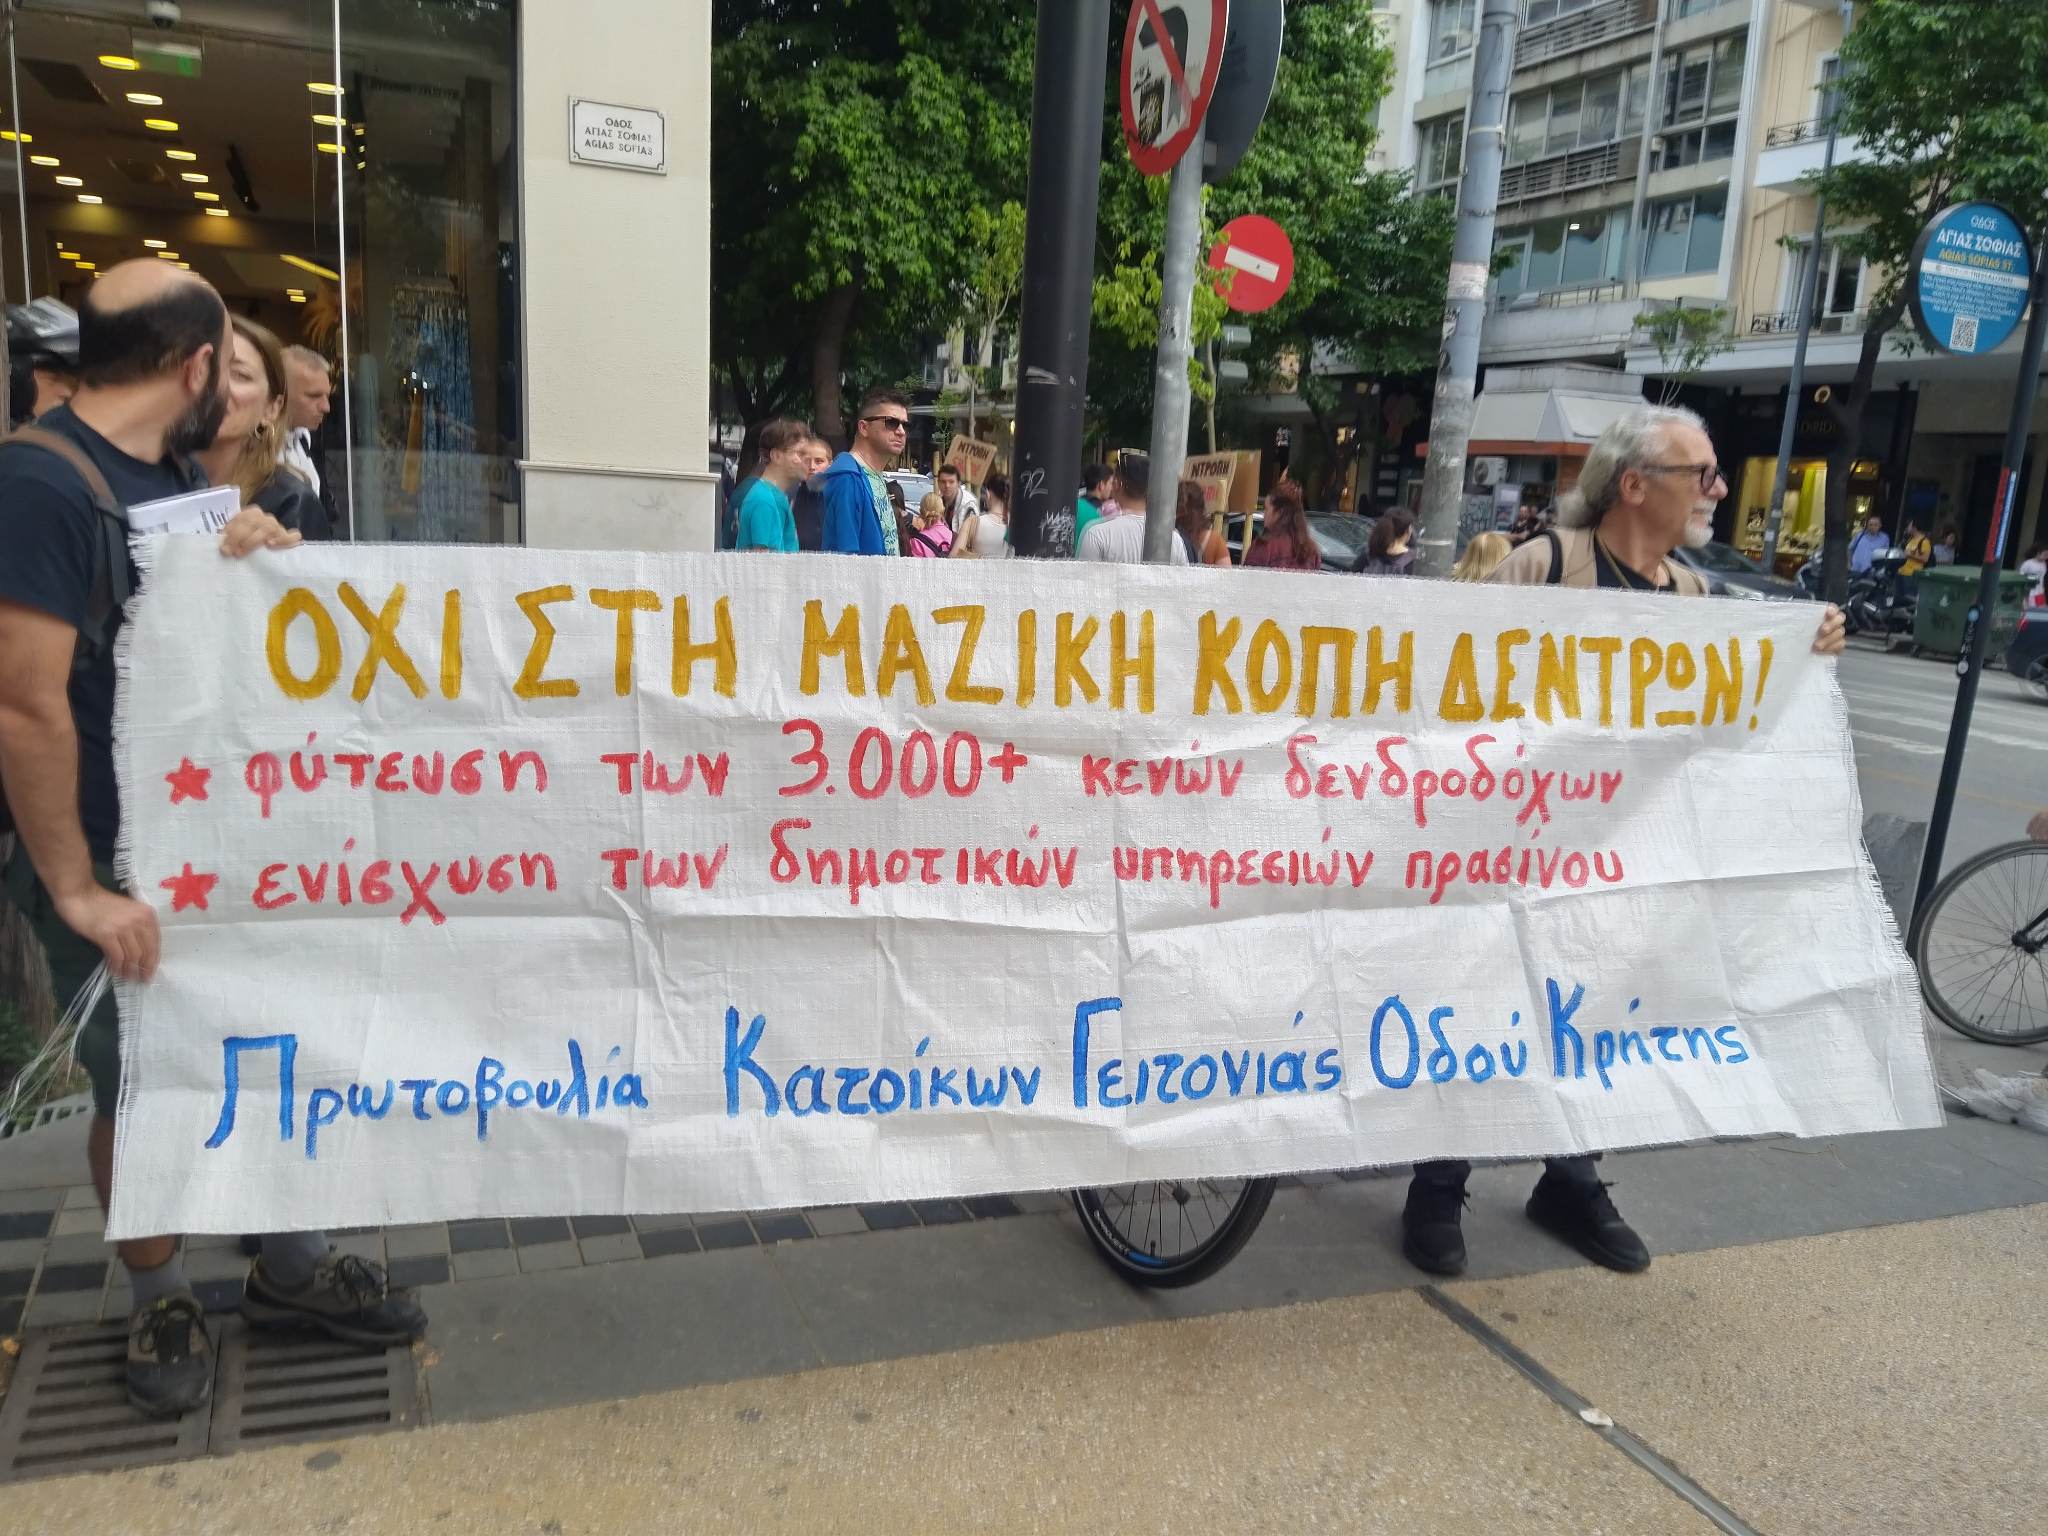 ΟΔΟΣ
ΑΓΙΑΣ ΣΟΦΙΑΣ
AGIAS SOFIAS
ΟΔΟΣ
ΑΓΙΑΣ ΣΟΦΙΑΣ
AGIAS SOFIAS ST.
ΝΤΡΟΠΗ
ΝΤΡΟΠΗ
ΟΧΙ ΣΤΗ ΜΑΖΙΚΗ ΚΟΠΗ ΔΕΝΤΡΩΝ!
★ φύτευση των 3.000+ κενών δενδροδόχων
★ ενίσχυση των δημοτικών υπηρεσιών πρασίνου
Πρωτοβουλία Κατοίκων Γειτονιάς Οδού Κρήτης